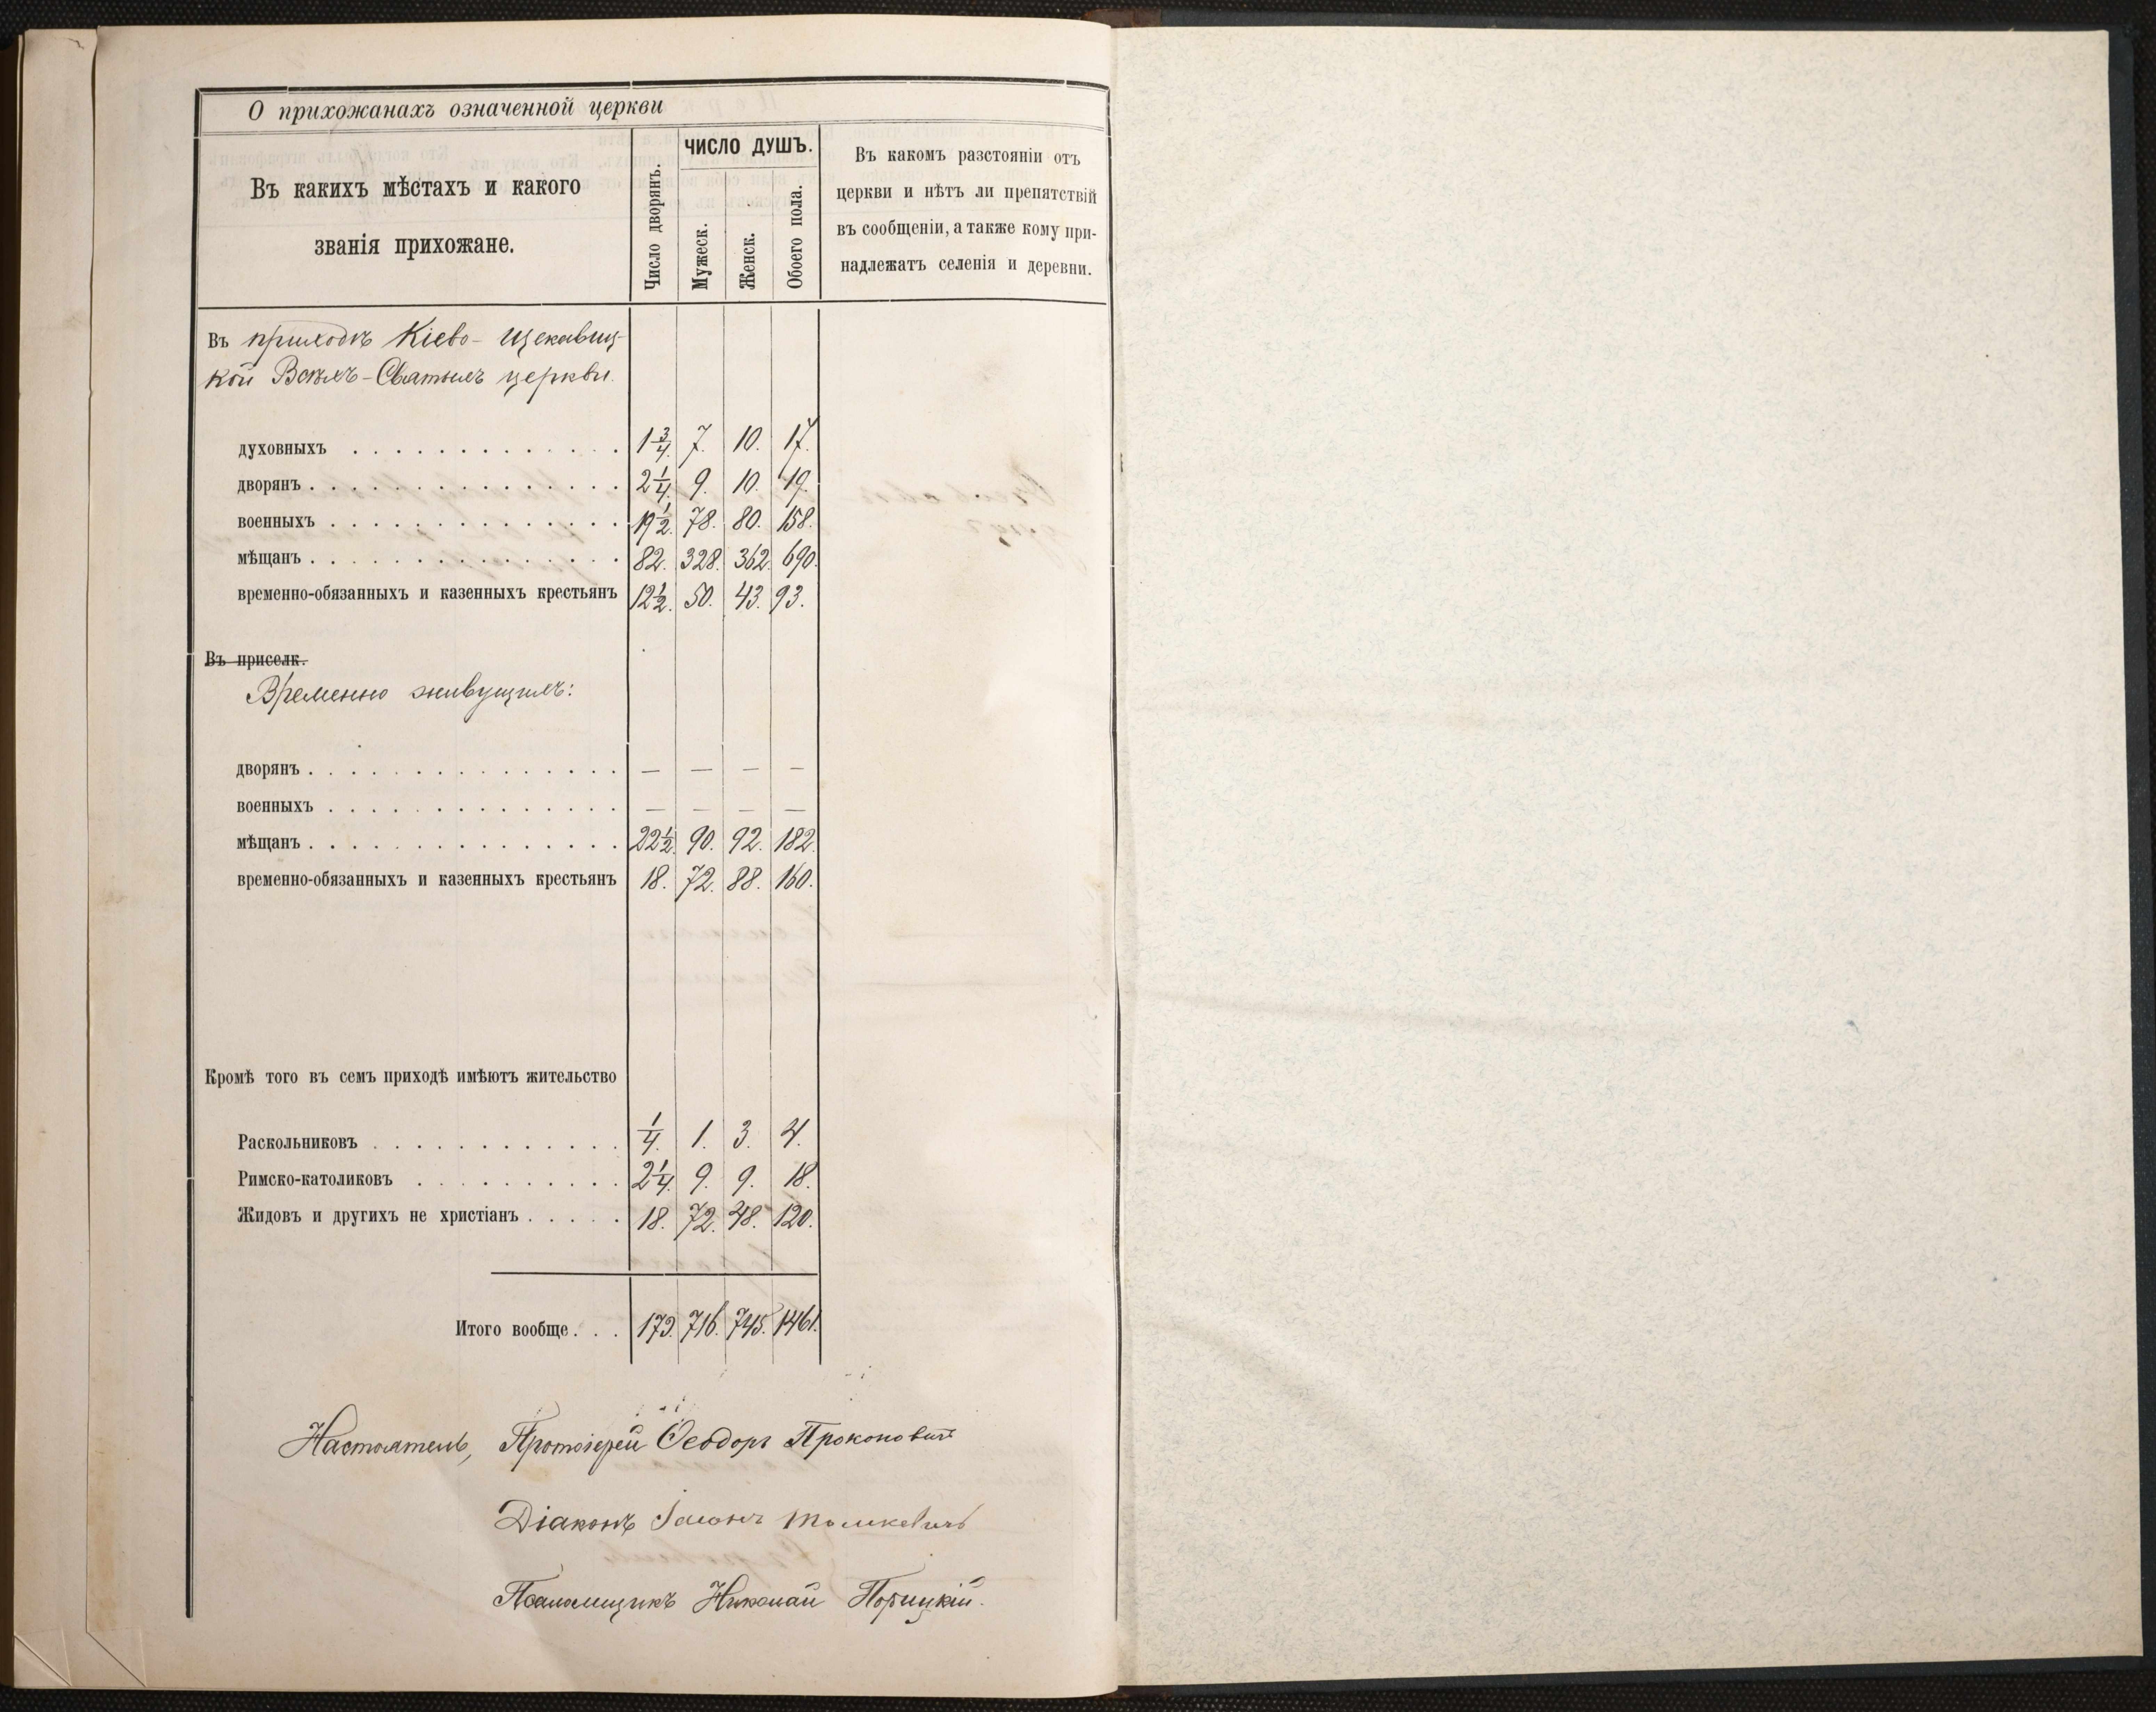 О прихожанахъ означенной церкви
Въ какихъ мѣстахъ и какого
званія прихожане.
Число дворянъ.
ЧИСЛО ДУШЪ.
Мужеск.
Женск.
Обоего пола.
Въ какомъ разстояніи отъ
церкви и нѣтъ ли препятствій
въ сообщеніи, а также кому при-
надлежатъ селенія и деревни.
Въ приходѣ Кіево-Щекавиц-
кой Всѣхъ-Святыхъ церкви.
духовныхъ . . . . . . . . . . . . . 1 3/4. 7. 10. 17.
дворянъ . . . . . . . . . . . . . . . 2 1/4. 9. 10. 19.
военныхъ . . . . . . . . . . . . . . 19 1/2. 78. 80. 158.
мѣщанъ . . . . . . . . . . . . . . . 82. 328. 362. 690.
временно-обязанныхъ и казенныхъ крестьянъ 12 1/2. 50. 43. 93.
Въ приселк.
Временно живущихъ:
дворянъ . . . . . . . . . . . . . . . — — — —
военныхъ . . . . . . . . . . . . . . — — — —
мѣщанъ . . . . . . . . . . . . . . . 22 1/2. 90. 92. 182.
временно-обязанныхъ и казенныхъ крестьянъ 18. 72. 88. 160.
Кромѣ того въ семъ приходѣ имѣютъ жительство
Раскольниковъ . . . . . . . . . . . . 1/4. 1. 3. 4.
Римско-католиковъ . . . . . . . . . . 2 1/4. 9. 9. 18.
Жидовъ и другихъ не христіанъ . . . . . 18. 72. 48. 120.
Итого вообще . . . 179. 716. 745. 1461.
Настоятель, Протоіерей Ѳеодоръ Прокоповичъ
Діаконъ Іасонъ
Псаломщикъ Николай Порицкій.